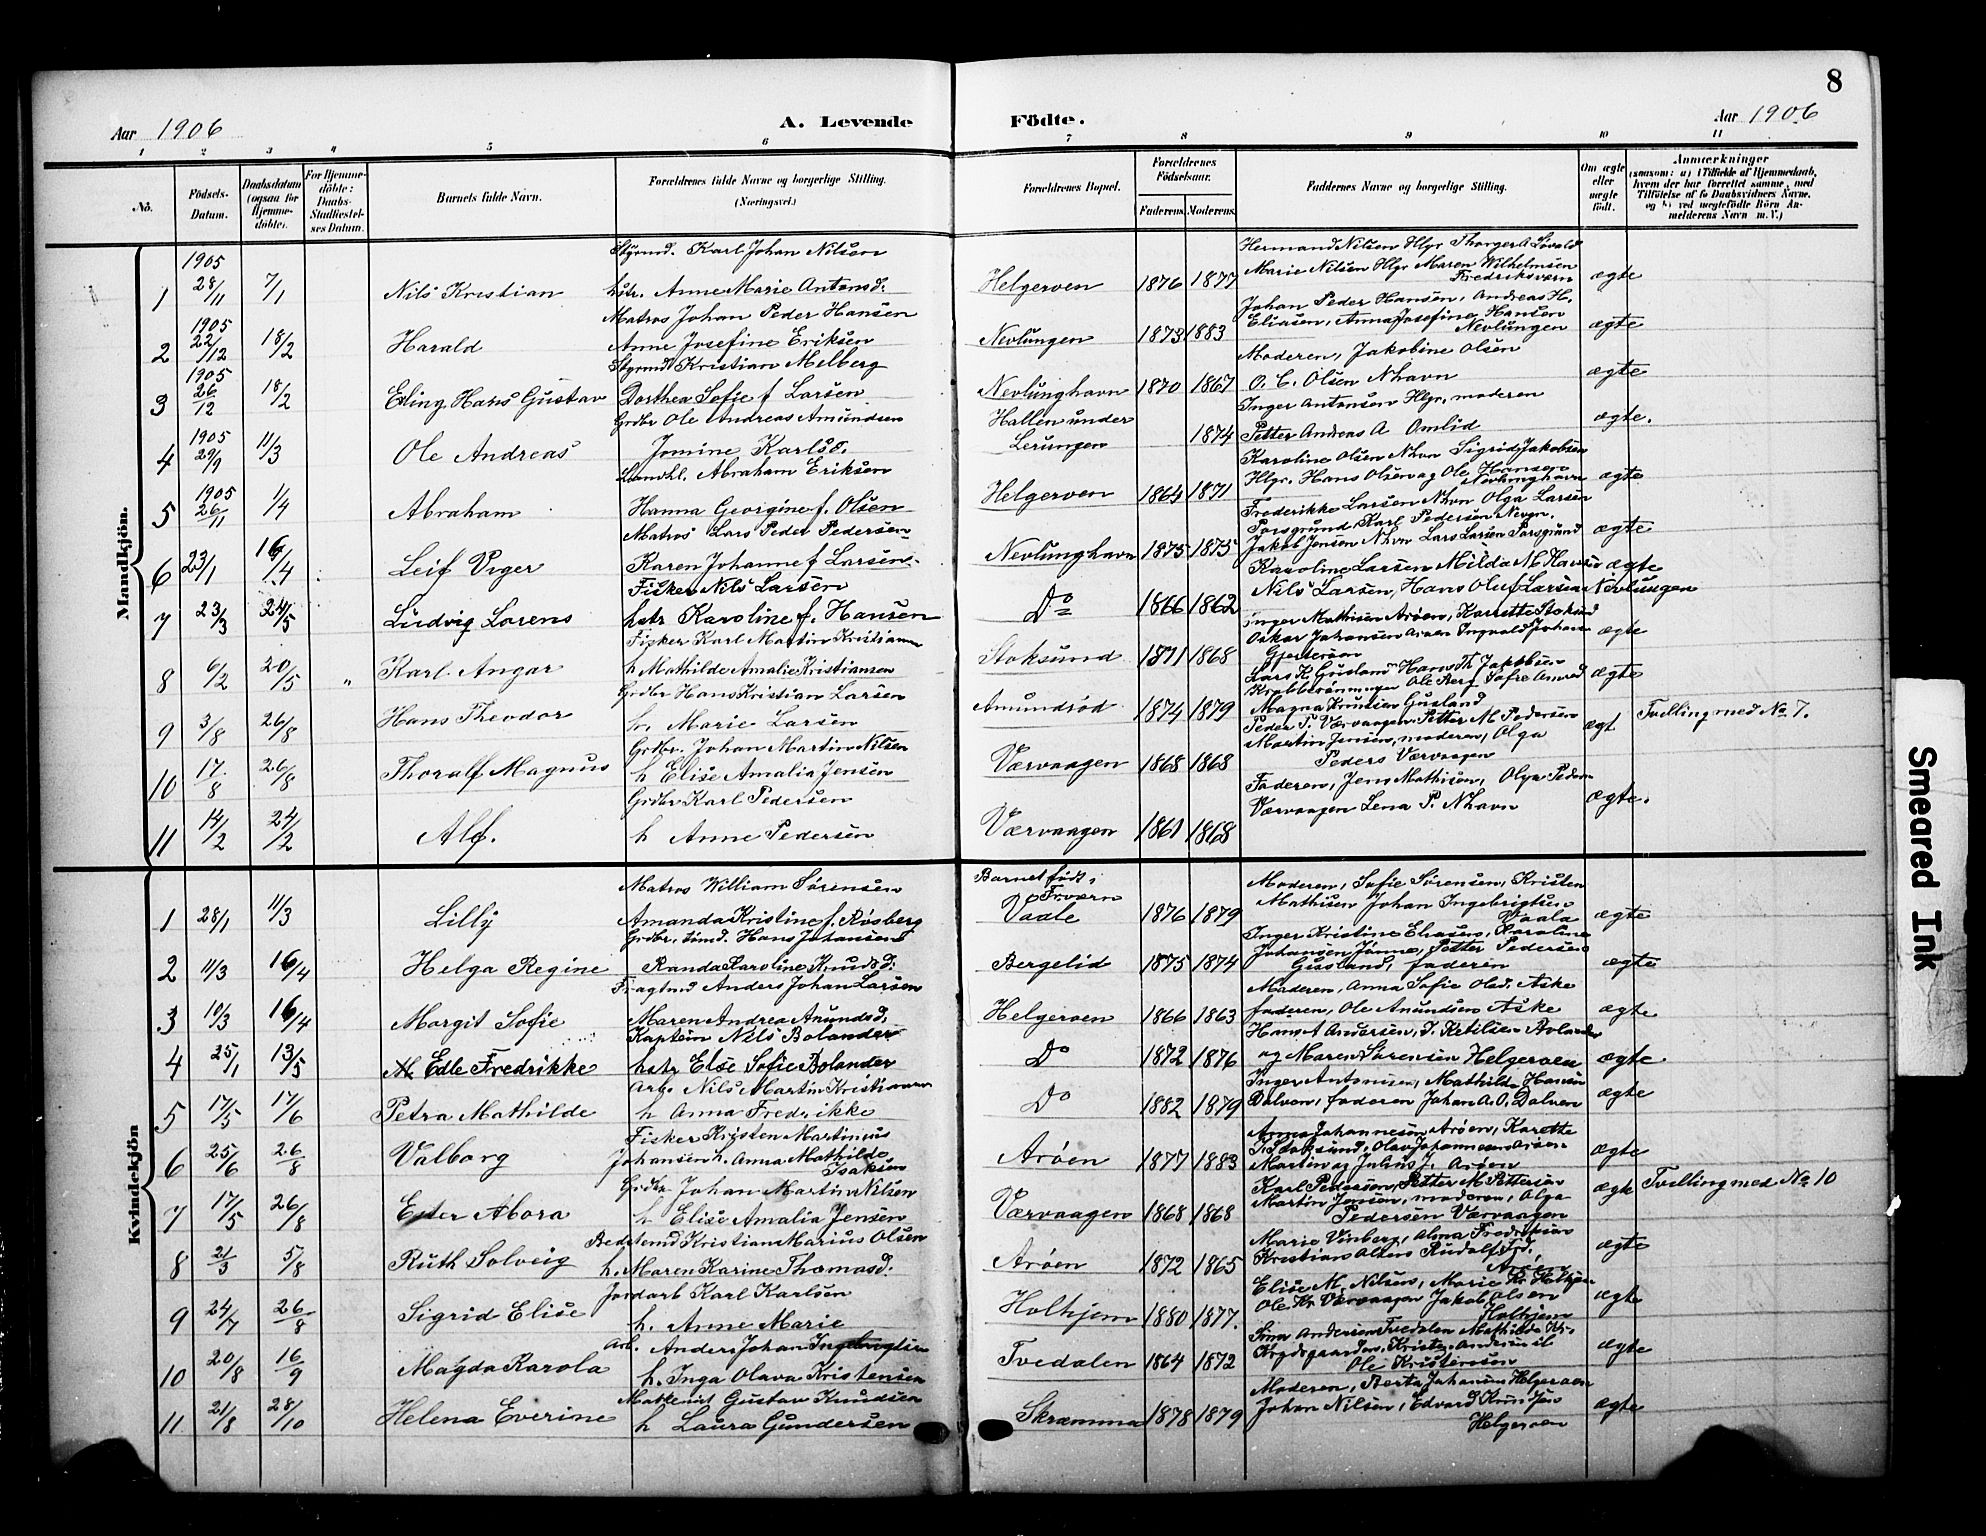 8
Aar 1906
A. Levende Födte.
Aar 1906
1 2 3 4 5 6 7 8 9 10 11
No.
Födsels-Datum.
Daabsdatum (ogsaa for Hjemme-döbte).
For Hjemme-döbte: Daabs-Stadfæstel-ses Datum.
Barnets fulde Navn.
Forældrenes fulde Navne og borgerlige Stilling. (Næringsvei.)
Forældrenes Bopæl.
Forældrenes Födselsaar.
Faderens. Moderens.
Faddernes Navne og borgerlige Stilling.
Om ægte eller uægte födt.
Anmærkninger
(saasom: a) i Tilfælde af Hjemmedaab, hvem der har forrettet samme, med Tilföielse af to Daabsvidners Navne, og b) ved uægtefödte Börn An-melderens Navn m. V.)
Mandkjön.
Styrmd. Karl Johan Nilsen
Hermand Nilsen Hlgr Thorger A Lövald
1 1905 28/11 7/1 Nils Kristian hstr. Anne Marie Antonsd. Helgeroen 1876 1877 Marie Nilsen Hlgr Maren Wilhelmsen Fredriksværn ægte
Matros Johan Peder Hansen
Johan Peder Hansen, Andreas H.
2 1905 22/12 18/2 Harald Anne Josefine Eriksen Nevlungen 1873 1883 Eliasen, Anna Josefine Hansen Nevlungen ægte
Styrmd Kristian Melberg
Moderen, Jakobine Olsen
3 1905 26/12 18/2 Erling Hans Gustav Dorthea Sofie f Larsen Nevlunghavn 1870 1867 O. C. Olsen Nhavn ægte
Grdbr Ole Andreas Amundsen
Hallen under
Inger Antonsen Hlgr, moderen
4 1905 29/9 11/3 Ole Andreas Jomine Karlsd. Lerungen 1874 Petter Andreas A Omlid ægte.
Landhl. Abraham Eriksen
Karoline Olsen Nhvn Sigrid Jakobsen
5 1905 26/11 1/4 Abraham Hanna Georgine f. Olsen Helgeroen 1864 1871 Hlgr. Hans Olsen og Ole Hansen Nevlunghavn ægte
Matros Lars Peder Pedersen
Frederikke Larsen Nhvn Olga Larsen
Porsgrund, Karl Pedersen Nevgn.
6 23/1 16/4 Leif Viger Karen Johanne f Larsen Nevlunghavn 1875 1875 Jakob Jensen Nhvn Lars Larsen Porsgrund ægte
Fisker Nils Larsen
Karoline Larsen Milda M Hansen ægte
7 23/3 24/5 Ludvig Lorens hstr Karoline f. Hansen Do 1866 1862 Nils Larsen, Hans Oluf Larsen Nevlungen
Fisker Karl Martin Kristiansen
Inger Mathisen Arøen, Karrette Stoksund
Oskar Johansen Arøen Ingvald Johan
8 6/2 20/5 " Karl Angar h Mathilde Amalie Kristiansen Stoksund 1871 1868 Gjesterøen ægte
Grdbr Hans Kristian Larsen
Lars K. Gusland Hans Th Jakobsen
Ole Berg Sofie
9 3/8 26/8 Hans Theodor h. Marie Larsen Amundrød 1874 1879 Magna Knutsen Gusland ægte Tvilling med No 7.
Grdbr. Johan Martin Nilsen
Peder P. Værvaagen Petter M Pedersen
Martin Jensen, moderen, Olga
10 17/8 26/8 Thoralf Magnus h Elise Amalia Jensen Værvaagen 1868 1868 Peders Værvaagen ægt
Grdbr Karl Pedersen
Faderen, Jens Mathisen, Olga Peders
11 14/2 24/2 Alf. h Anne Pedersen Værvaagen 1861 1868 Værvaagen Lena P. Nhavn ægte.
Kvindekjön
Matros William Sørensen
Barnet født i Frværn
Moderen, Sofie Sørensen, Kristen
1 28/1 11/3 Lilly Amanda Kristine f. Røsberg Vaale 1876 1879 Mathisen Johan Ingebrigtsen Vaale ægte
Grdbr, tømd. Hans Johansen
Inger Kristine Eliasen, Karoline
2 11/3 16/4 Helga Regine Randa Karoline Knudsd. Bergelid 1875 1874 Johansen Jønne, Petter Pedersen Gusland, faderen ægte
Fragtmd Anders Johan Larsen
Moderen, Anna Sofie Olsd. Aske
3 10/3 16/4 Margit Sofie Maren Andrea Anundsd. Helgeroen 1866 1863 faderen, Ole Anundsen Aske ægte
Kaptein Nils Bolander
Hans A Andersen, D. Ketilien Bolander
4 25/1 13/5 Edle Fredrikke hstr Elise Sofie Bolander Do 1872 1876 og Maren Sørensen Helgeroen ægte
Arb. Nils Martin Kristiansen
Inger Antonisen, Mathilde Hansen
5 17/5 17/6 Petra Mathilde h Anna Fredrikke Do 1882 1879 Dalven, faderen Johan A. O. Dalven ægte
Fisker Kristen Martinius
Anna Johannesen Arøen, Karette
6 25/6 26/8 Valborg Johansen h. Anna Mathilde Isaksen Arøen 1877 1883 Stoksund, Olav Johannesen Arøen Martin og Julius J. Arøen ægte
Grdbr Johan Martin Nilsen
Karl Pedersen, Petter M Pettersen
7 17/5 26/8 Ester Abora h Elise Amalia Jensen Værvaagen 1868 1868 Martin Jensen, moderen, Olga Pedersen Værvaagen ægte Tvilling med No 10
Bedstemd Kristian Marius Olsen
Marie Vinberg, Alma Fredriksen
8 2/3 5/8 Ruth Solveig h. Maren Karine Thomasd. Arøen 1872 1865 Kristians Olsens Rudolf Frd. Arøen ægte
Jordarb Karl Karlsen
Elise M. Nilsen, Marie Kr. Holhjem
9 24/7 26/8 Sigrid Elise h. Anne Marie Holhjem 1880 1877. Ole Kr. Værvaagen Jakob Olsen Holhjem ægte
Arb. Anders Johan Ingebrigtsen
Sina Andersen Tvedalen Mathilde Kr.
10 20/8 16/9 Magda Karola h. Inga Olava Kristensen Tvedalen 1864 1872 Ole Kristensen ægte
Gustav Knudsen
Moderen, Berta Johansen Helgeroen
11 21/8 28/10 Helena Everine h Laura Gundersen Skræmma 1878 1879 Johan Nilsen, Edvard Helgeroen ægte
Smeared Ink